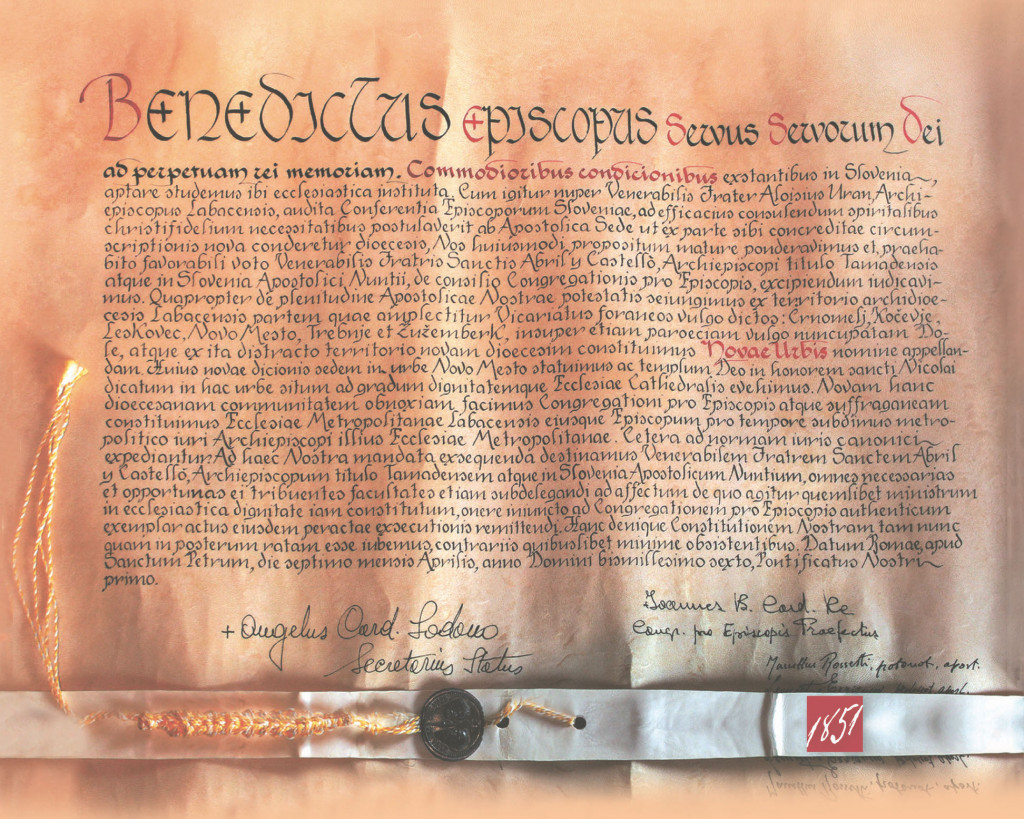 Benedictus Episcopus Servus Servorum Dei
ad perpetuam rei memoriam. Commodioribus condicionibus exstantibus in Slovenia,
aptare studemus ibi ecclesiastica instituta. Cum igitur nuper Venerabilis Frater Aloisius Uran, Archi-
episcopus Labacensis, audita Conferentia Episcoporum Sloveniae, ad efficacius consulendum spiritalibus
christifidelium necessitatibus postulaverit ab Apostolica Sede ut ex parte sibi concreditae circum-
scriptionis nova conderetur dioecesis, Nos huiusmodi propositum mature ponderavimus et, praeha-
bito favorabili voto Venerabilis Fratris Sanctis Abril y Castelló, Archiepiscopi titulo Tamadensis
atque in Slovenia Apostolici Nuntii, de consilio Congregationis pro Episcopis, excipiendum iudicavi-
mus. Quapropter de plenitudine Apostolicae Nostrae potestatis seiungimus ex territorio archidioe-
cesis Labacensis partem quae amplectitur Vicariatus foraneos vulgo dictos: Črnomelj, Kočevje,
Leskovec, Novo Mesto, Trebnje et Žužemberk, insuper etiam paroeciam vulgo nuncupatam Do-
le, atque ex ita distracto territorio novam dioecesim constituimus Novae Urbis nomine appellan-
dam. Huius novae dicionis sedem in urbe Novo Mesto statuimus ac templum Deo in honorem sancti Nicolai
dicatum in hac urbe situm ad gradum dignitatemque Ecclesiae Cathedralis evehimus. Novam hanc
dioecesanam communitatem obnoxiam facimus Congregationi pro Episcopis atque suffraganeam
constituimus Ecclesiae Metropolitanae Labacensis eiusque Episcopum pro tempore subdimus metro-
politico iuri Archiepiscopi illius Ecclesiae Metropolitanae. Cetera ad normam iuris canonici
expediantur. Ad haec Nostra mandata exsequenda destinamus Venerabilem Fratrem Sanctem Abril
y Castelló, Archiepiscopum titulo Tamadensem atque in Slovenia Apostolicum Nuntium, omnes necessarias
et opportunas ei tribuentes facultates etiam subdelegandi ad affectum de quo agitur quemlibet ministrum
in ecclesiastica dignitate iam constitutum, onere iniuncto ad Congregationem pro Episcopis authenticum
exemplar actus eiusdem peractae exsecutionis remittendi. Hanc denique Constitutionem Nostram tam nunc
quam in posterum ratam esse iubemus, contrariis quibuslibet minime obsistentibus. Datum Romae, apud
Sanctum Petrum, die septimo mensis Aprilis, anno Domini bismillesimo sexto, Pontificatus Nostri
primo.
+ Angelus Card. Sodano
Secretarius Status
Ioannes B. Card. Re
Congr. pro Episcopis Praefectus
Marcellus Rossetti, protonot. apost.
1851